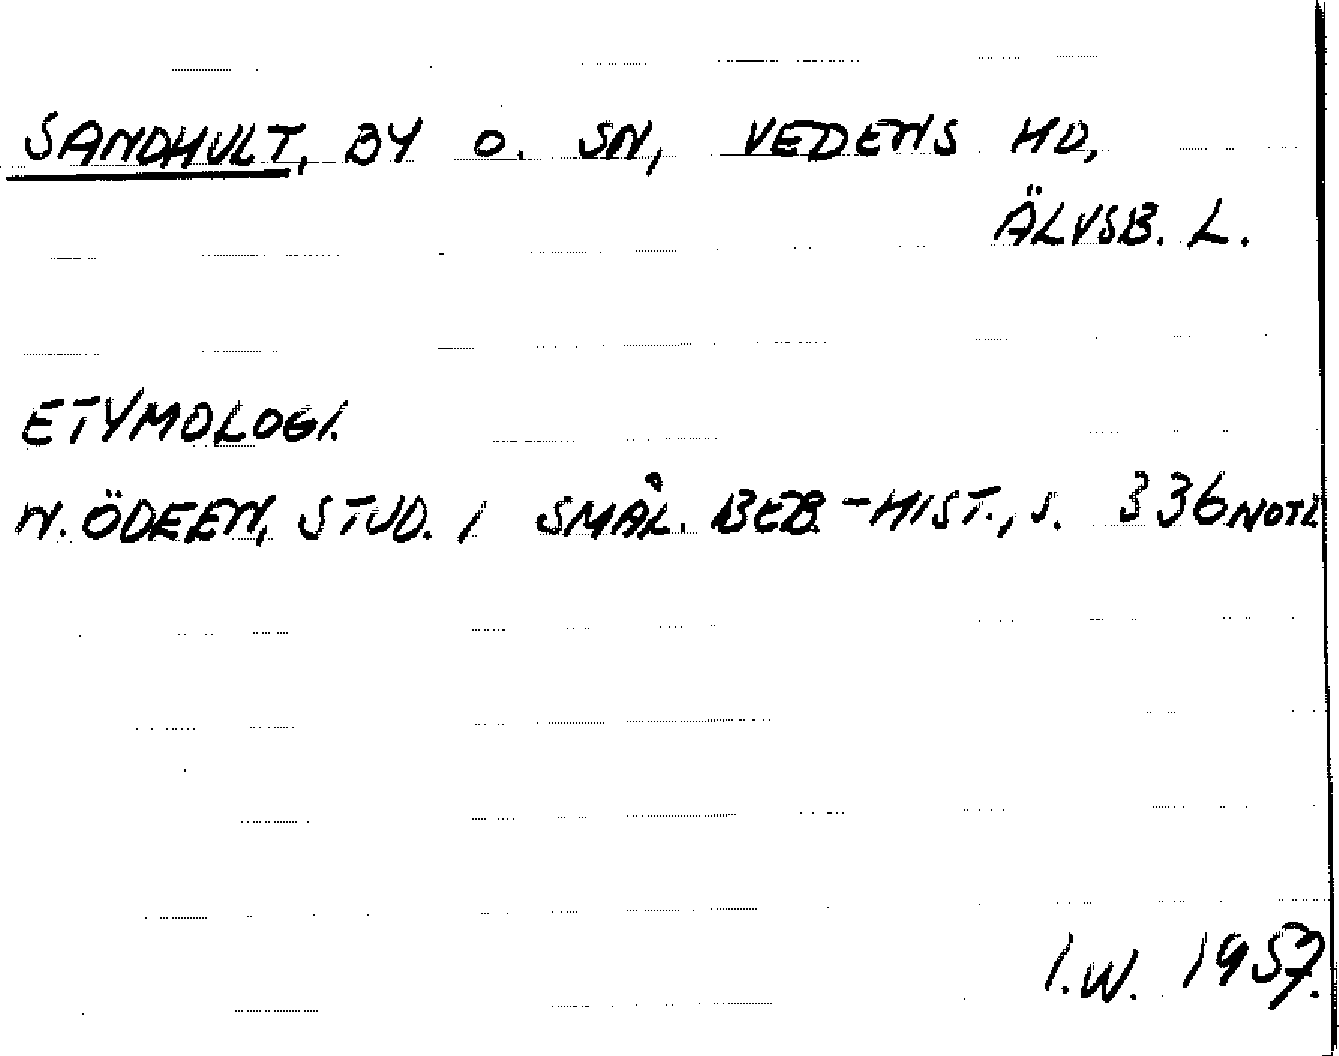 SANDHULT, BY O. SN, VEDENS HD,
ÄLVSB. L.
ETYMOLOGI.
N. ÖDEEN, STUD. I SMÅL. BEB.-HIST., S. 336 NOTE
I.W. 1957.